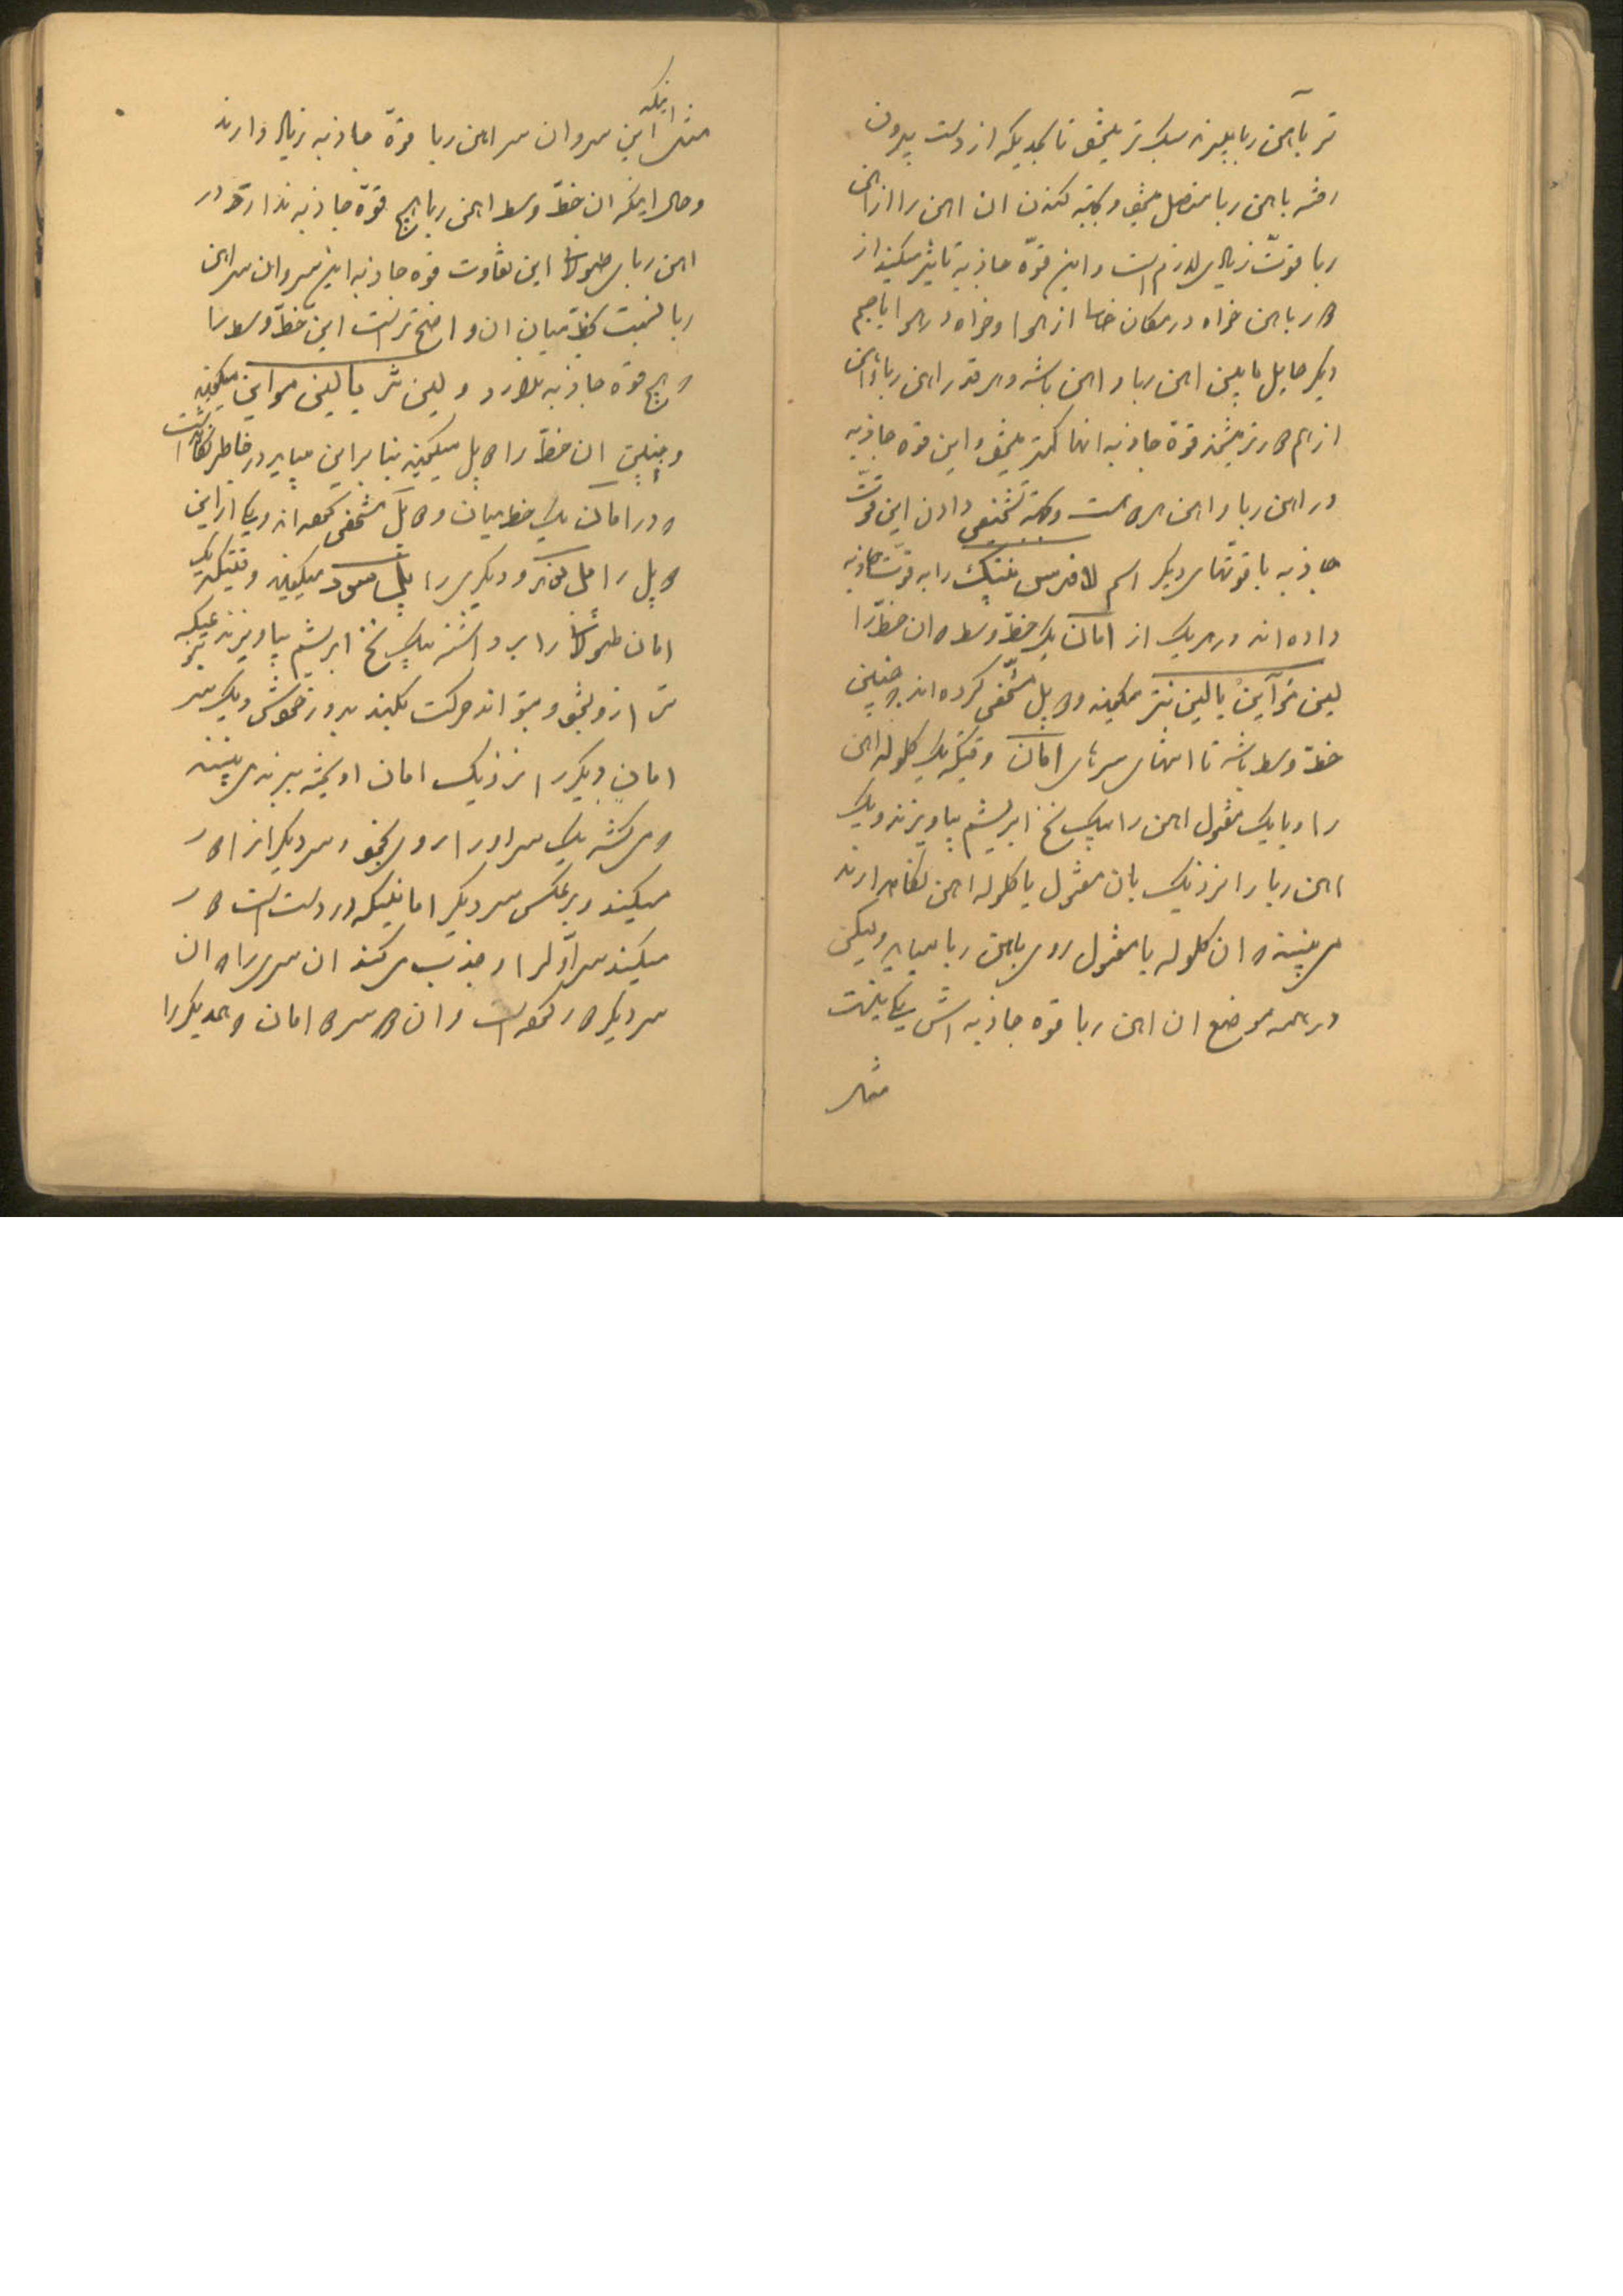 تر با آهن ربا بلند سبک تر میشود تا بحدیکه از دست بیرون
رفته باهن ربا متصل میشود و بجهة کندن ان اهن را از اهن
ربا قوتّ زیادی لازم است و این قوّه جاذبه تاثیر میکند از
دور باهن خواه در مکان خالی از هوا و خواه در هوا یا جسم
دیگر حایل مابین اهن ربا و اهن باشد و هر قدر اهن ربا و اهن
از هم دورتر میشوند قوّة جاذبه انها کمتر میشود و این قوه جاذبه
در اهن ربا و اهن هر دو هست و بجهة تشخیص دادن این قوّت
جاذبه با قوتهای دیگر اسم لافرس منیتیک را به قوّت جاذبه
داده اند در هر یک از امان یک خطّ وسط و ان خطّ را
لین مواین یا لین نتر میگویند و دو پل مشخص کرده اند و چنین
خطّ وسط باشد تا انتهای سرهای امان وقتیکه یک کلوله اهن
را و یا یک مفتول اهن را بیک نخ ابریشم بیاویزند و یک
اهن ربا را نزدیک بان مفتول یا کلوله اهن نگاه دارند
می بینند که ان کلوله یا مفتول روی باهن ربا میاید ولیکن
در همه موضع ان اهن ربا قوه جاذبه اش یکی نیست
مثلا
مثلا اینکه این سر و ان سر اهن ربا قوّة جاذبه زیاد دارند
و حال اینکه ان خطّ وسط اهن ربا هیچ قوّة جاذبه ندارد و در
اهن ربای طولانی این تفاوت قوه جاذبه این سر و ان سر اهن
ربا نسبت بخط میان ان واضح تر است این خطّ وسط را
که هیچ قوه جاذبه ندارد و لین نتر یا لین مواین میگویند
و چنین ان خطّ را دو پل میگویند بنا براین میباید در خاطر نگاه داشت
که در امان یک خط میان و دو پل مشخص نموده اند و یکی از این
دو پل را پل نر و دیگری را پل سود میگویند وقتیکه یک
امان طولانی را برداشته بیک نخ ابریشم بیاویزند بنحویکه
ترازو بشود و بتواند حرکت بکند بدور خودش و یک سر
امان دیگر را نزدیک امان اویخته ببرند می بینند
که می کشد یک سر او را روی خود و سر دیگر از او دور
میکند و بر عکس سر دیگر امانیکه در دست است دور
میکند سر اوّل را و جذب می کند ان سری را که ان
سر دیگر دور نموده است و ان دو سر دو امان که همدیگر را